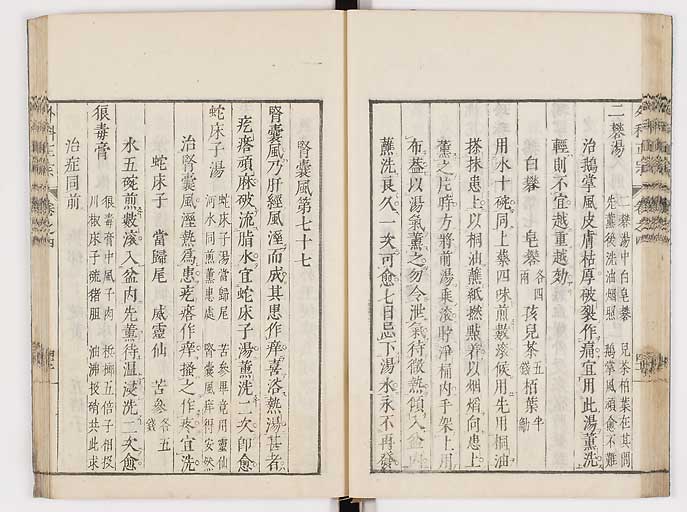 二礬湯
二礬湯中白皂礬　兒茶栢葉在其間
先薰後洗油烟照　鵝掌風頑愈不難
治鵝掌風皮膚枯厚破裂作痛宜用此湯薰洗
輕則不宜越重越効
白礬　皂礬各四兩　孩兒茶五錢　栢葉半觔
用水十碗同上藥四味煎數滚候用先用桐油
搽抹患上以桐油蘸紙撚點着以烟焰向患上
薰之片時方將前湯乘滚貯淨桶内手架上用
布蓋以湯氣薰之勿令泄氣待微熱傾入盆内
蘸洗良久一次可愈七日忌下湯水永不再發
腎囊風第七十七
腎囊風乃肝經風溼而成其患作痒喜浴熱湯甚者
疙瘩頑麻破流脂水宜蛇床子湯薰洗二次卽愈
蛇床子湯
蛇床子湯當歸尾　苦參畢竟用靈仙
河水同煎薰患處　腎囊風痒得安然
治腎囊風溼熱爲患疙瘩作痒搔之作疼宜洗
蛇床子　當歸尾　威靈仙　苦參各五錢
水五碗煎數滚入盆内先薰待温浸洗二次愈
狼毒膏
狼毒膏中風子肉　檳榔五倍子相投
川椒床子硫猪胆　油沸投硝共此求
治症同前
外科正宗　卷之四